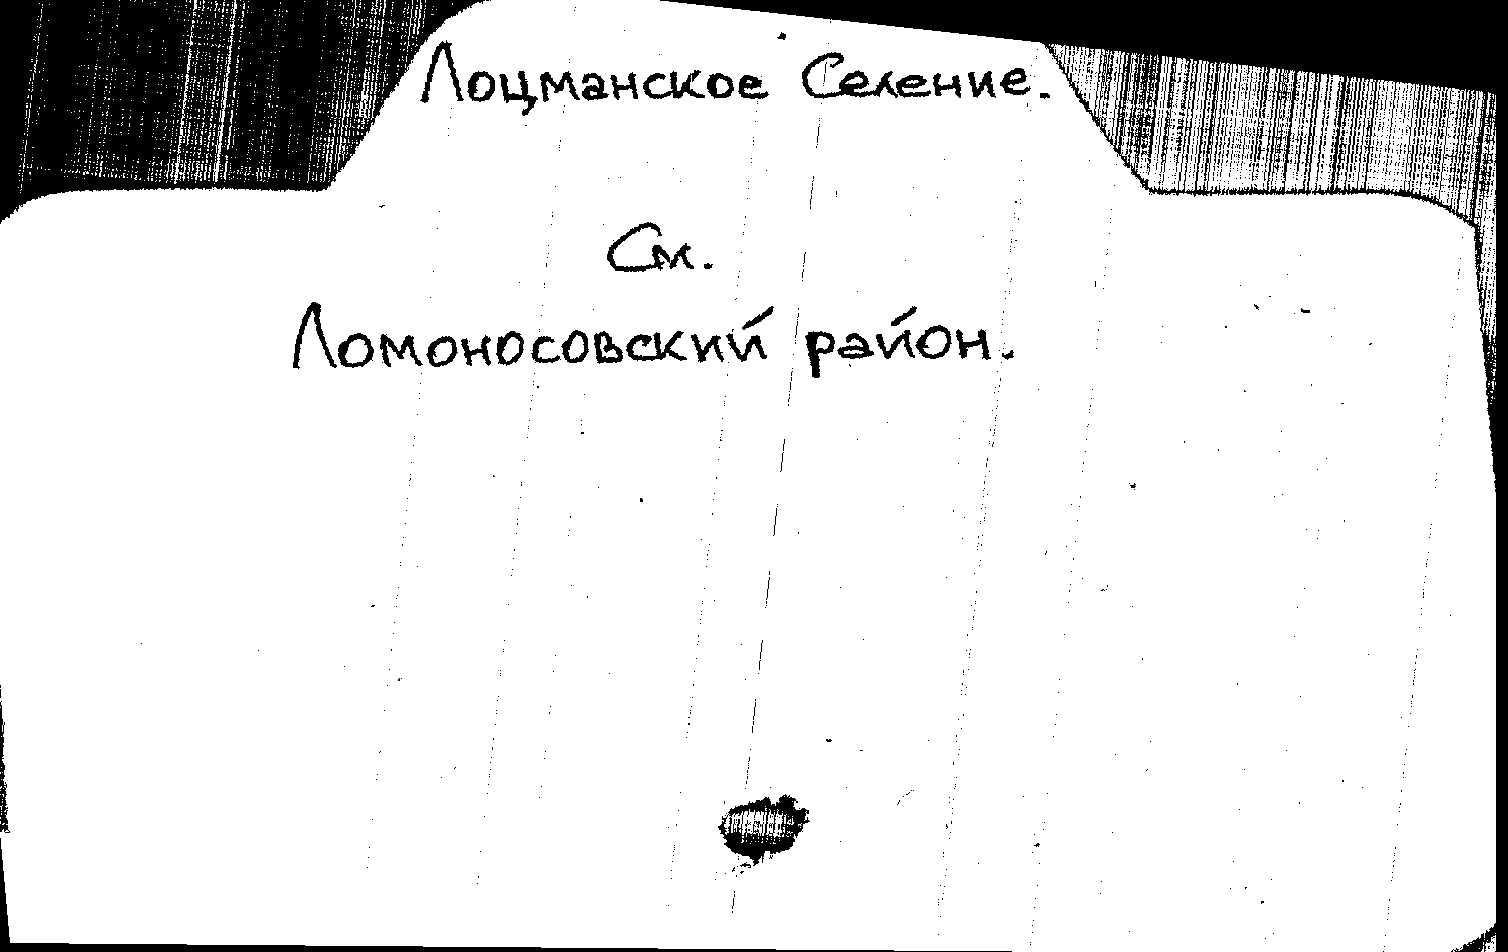 Лоцманское Селение.
См.
Ломоносовский район.